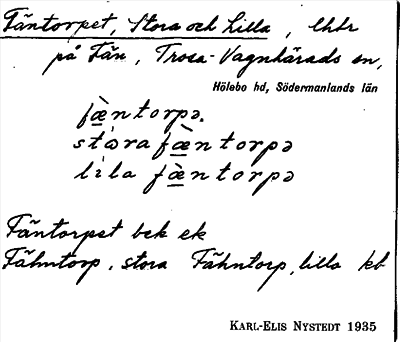 Fäntorpet, Stora och Lilla, lhbr
på Fän, Trosa-Vagnhärads sn,
Hölebo hd, Södermanlands län
fæ̀ntorpə.
stɷ́ra fæ̀ntorpə
líla fæ̀ntorpə
Fäntorpet bek ek
Fähntorp, stora Fähntorp, lilla kb
KARL-ELIS NYSTEDT 1935